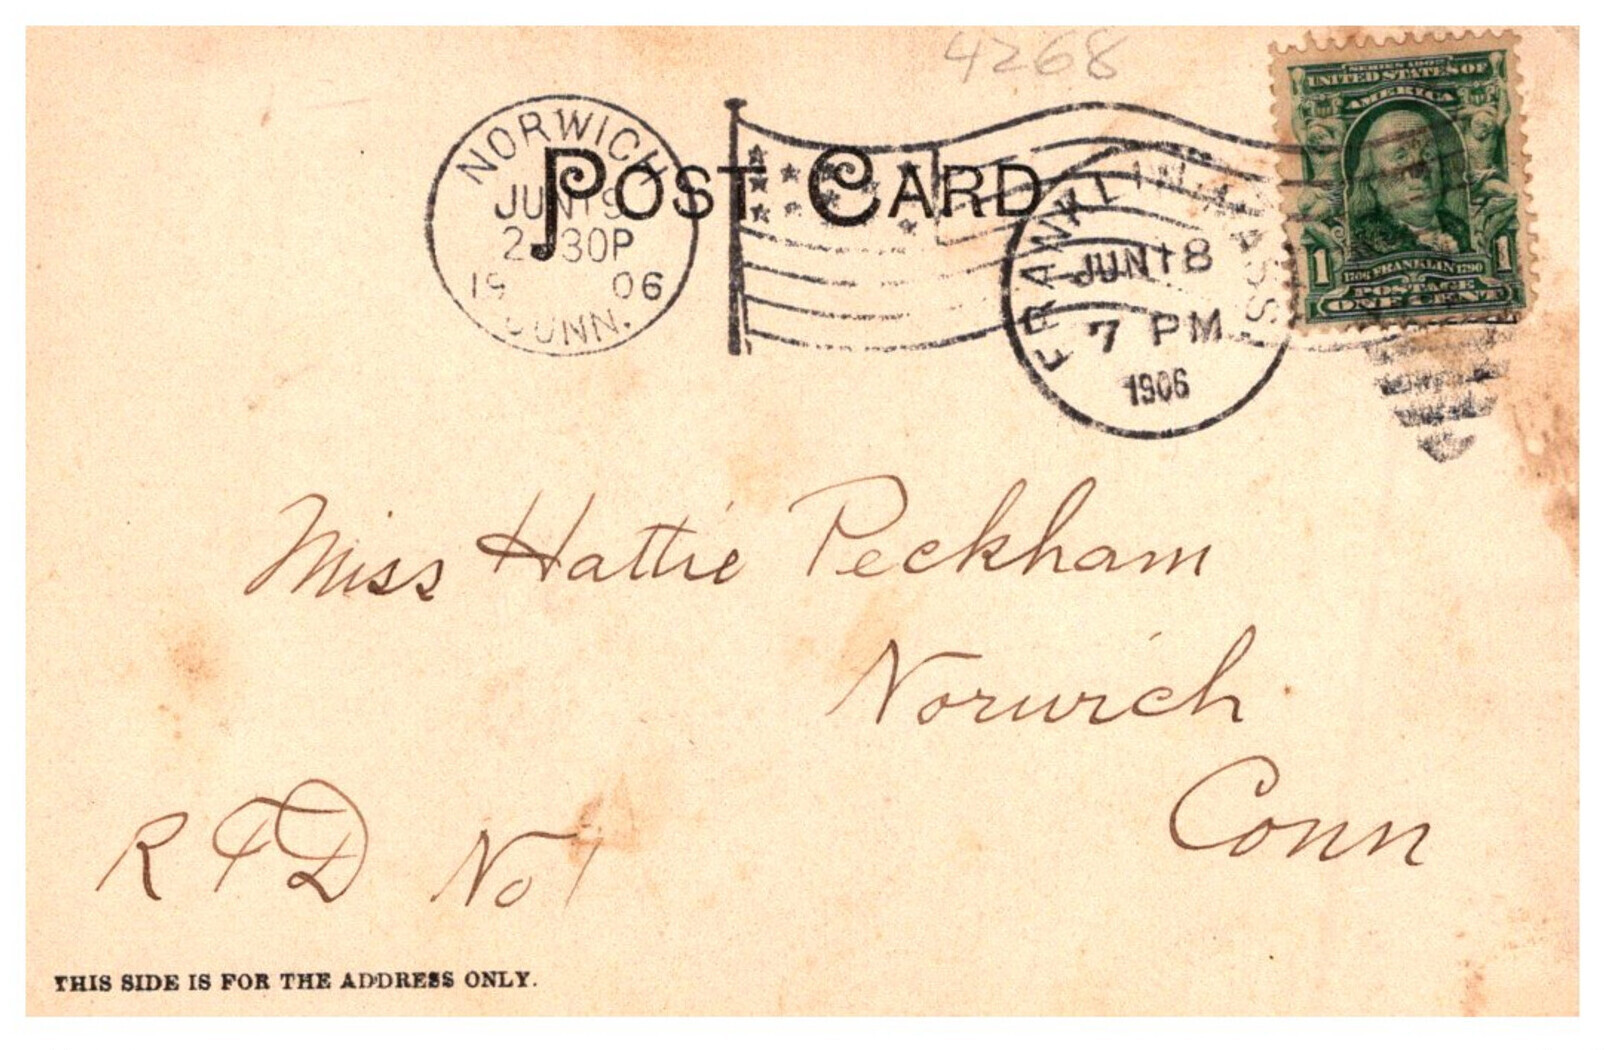 4268
SERIES 1902
UNITED STATES OF
AMERICA
1 1
1706 FRANKLIN 1790
POSTAGE
ONE CENT
NORWICH
JUN 19
2 30P
19 06
CONN.
POST CARD
FRANKLIN, MASS.
JUN 18
7 PM
1906
Miss Hattie Peckham
Norwich
Conn
R F D No 1
THIS SIDE IS FOR THE ADDRESS ONLY.